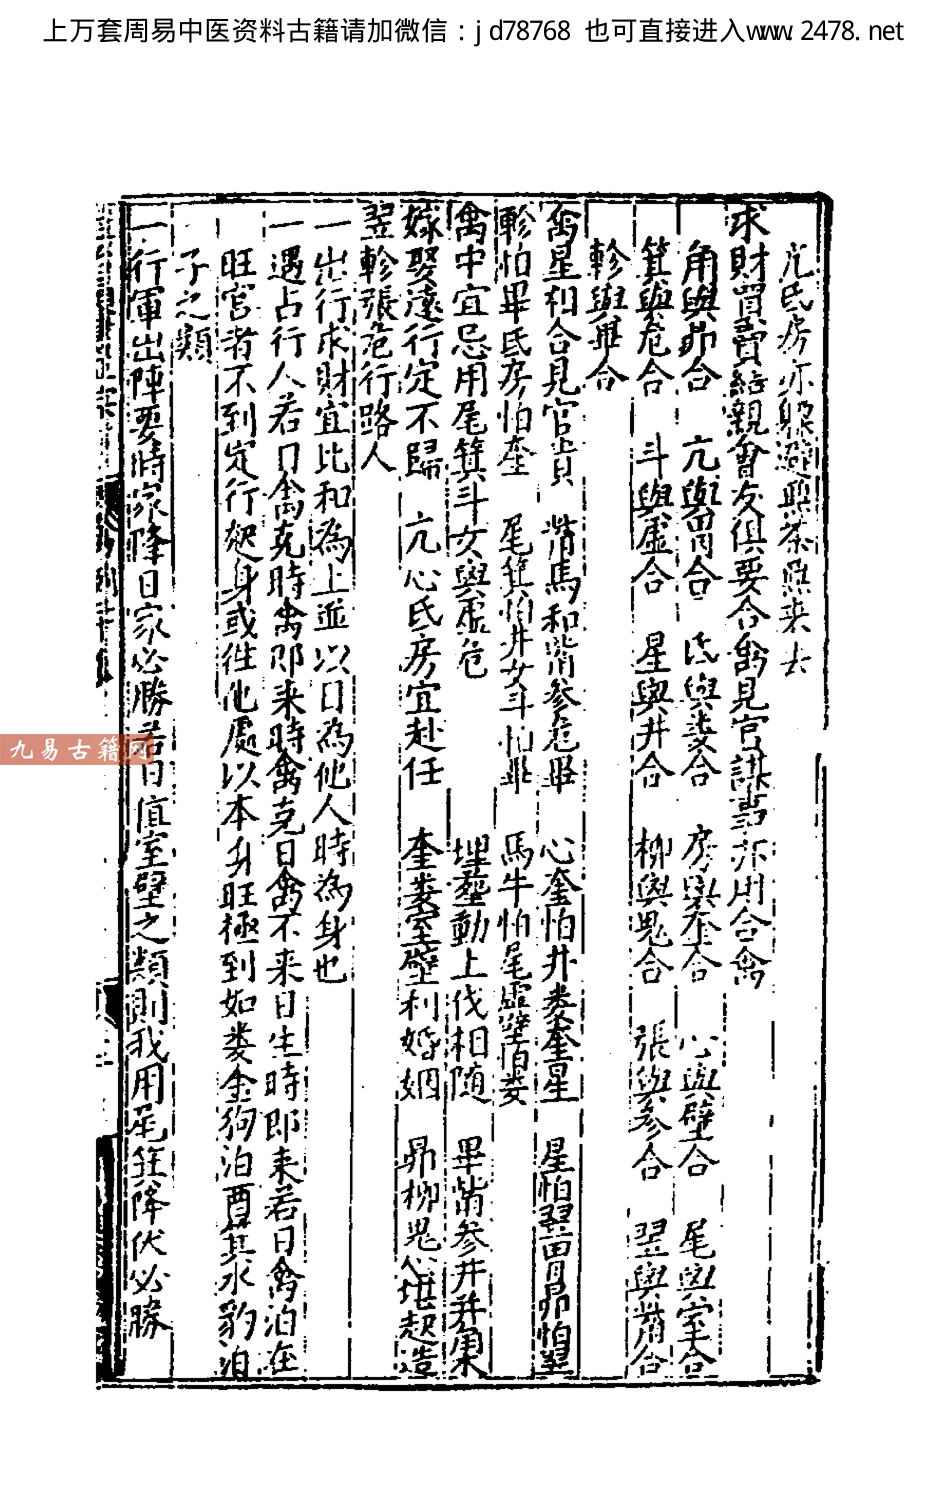 上万套周易中医资料古籍请加微信：jd78768 也可直接进入www.2478.net
亢氐房亦躲避 無茶無来去
求財買賣結親會友俱要合禽見官謀事亦用合禽
角與昴合 亢與胃合 氐與婁合 房與奎合 心與壁合 尾與室合
箕與危合 斗與虛合 星與井合 柳與鬼合 張與參合 翌與觜合
軫與畢合
禽星和合見官貴 觜馬和諧參危畢 心奎怕井娄奎星 星怕翌胃昴怕翌
軫怕畢氐房怕奎 尾箕怕井女斗怕畢 馬牛怕尾虛壁怕娄
禽中宜忌用尾箕斗女與虛危 埋塟動上伐相随 畢觜参井并角木
嫁娶遠行定不歸 亢心氐房宜赴任 奎娄室壁利婚姻 昴柳鬼心堪起造
翌軫張危行路人
一出行求財宜比和為上並以日為他人時為身也
一遇占行人若日禽克時禽即来時禽克日禽不来日生時即来若日禽泊在
旺宮者不到定行起身或往他處以本身旺極到如娄金狗泊酉箕水豹泊
子之類
一行軍出陣要時家降日家必勝若日值室壁之類則我用尾狂降伏必勝
九易古籍网